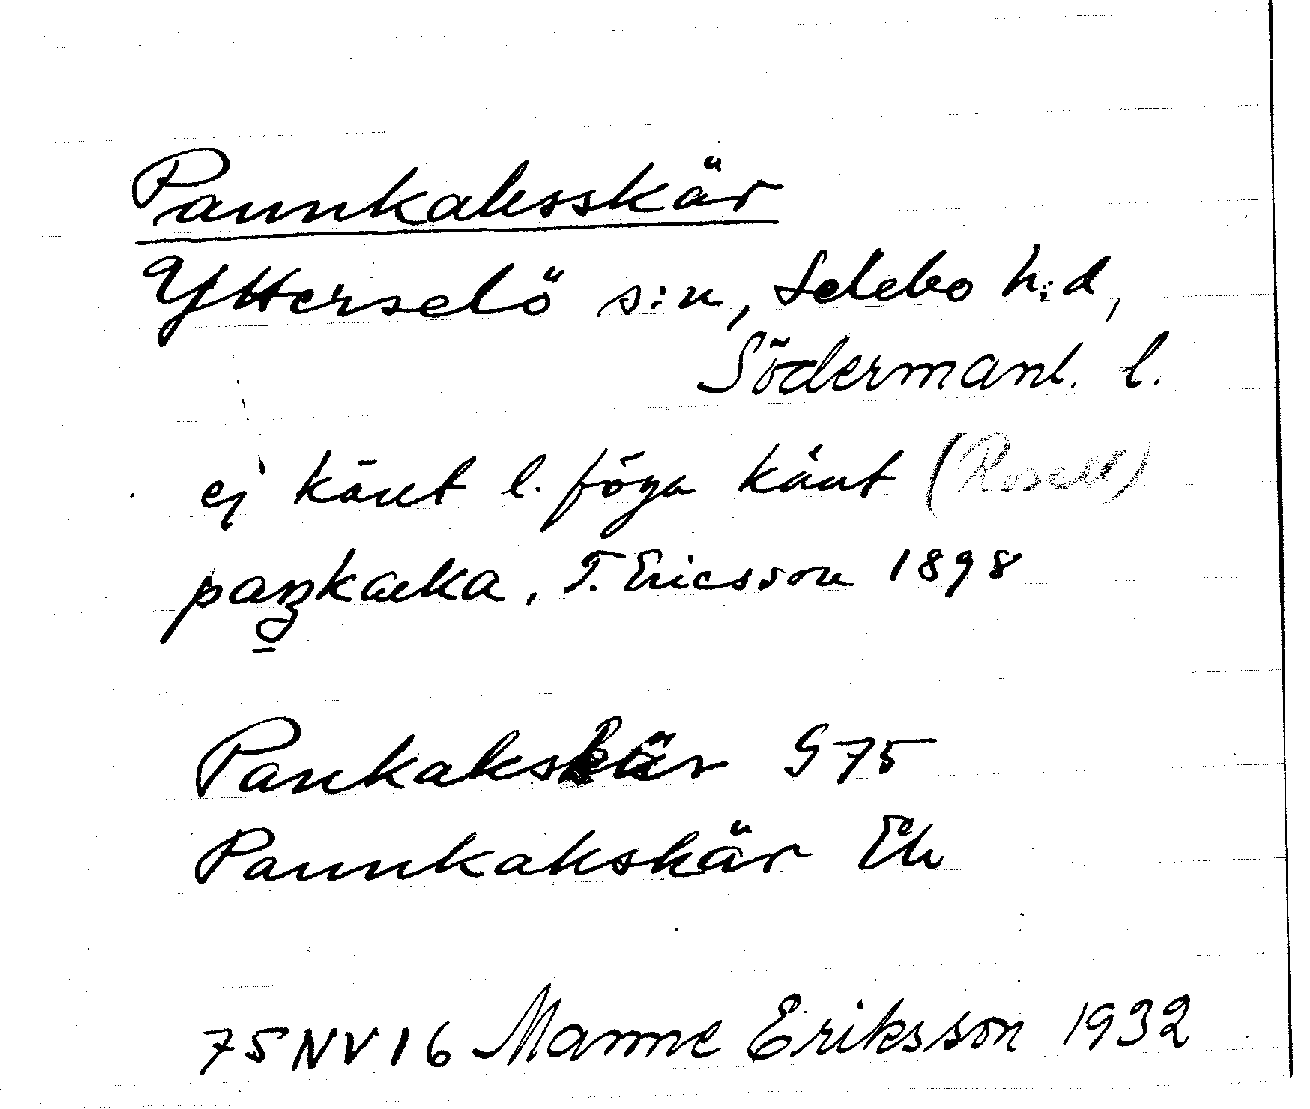 Pannkaksskär
Ytterselö s:n, Selebo h:d,
Södermanl. l.
ej känt l. föga känt (Rosell)
paŋkaka, T. Ericsson 1898
Pankakskär G 75
Pannkakskär Ek
75 NV 16 Manne Eriksson 1932